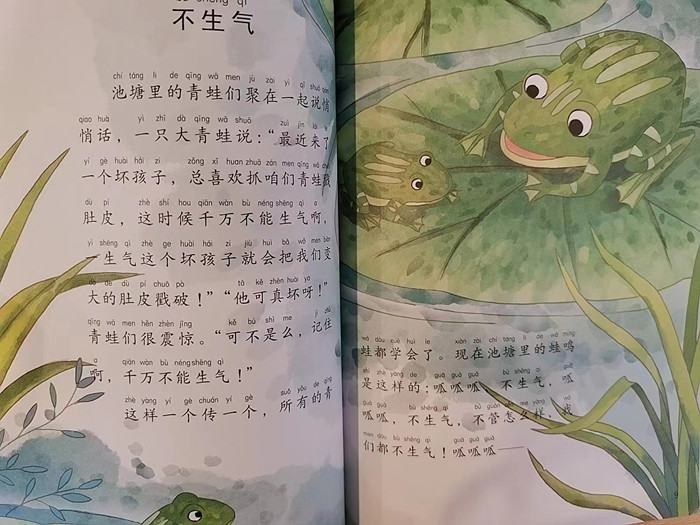 shēng qì
不生气
chí táng lǐ de qīng wā men jù zài yì qǐ shuō
池塘里的青蛙们聚在一起说悄
qiāo huà yì zhī dà qīng wā shuō zuì jìn lái le
悄话，一只大青蛙说：“最近来了
yí gè huài hái zi zǒng xǐ huan zhuā zán men qīng wā
一个坏孩子，总喜欢抓咱们青蛙戳
dù pí zhè shí hou qiān wàn bù néng shēng qì a
肚皮，这时候千万不能生气啊，
yì shēng qì zhè ge huài hái zi jiù huì bǎ wǒ men biàn
一生气这个坏孩子就会把我们变
dà de dù pí chuō pò tā kě zhēn huài ya
大的肚皮戳破！”“他可真坏呀！”
qīng wā men hěn zhèn jīng kě bú shì me jì zhù
青蛙们很震惊。“可不是么，记住
a qiān wàn bù néng shēng qì
啊，千万不能生气！”
zhè yàng yí gè chuán yí gè suǒ yǒu de qīng
这样一个传一个，所有的青
wā dōu xué huì le xiàn zài chí táng lǐ de wā míng
蛙都学会了。现在池塘里的蛙鸣
shì zhè yàng de guā guā guā bù shēng qì guā
是这样的：呱呱呱，不生气，呱
guā guā bù shēng qì bù guǎn zěn me yàng wǒ
呱呱，不生气，不管怎么样，我
men dōu bù shēng qì guā guā guā
们都不生气！呱呱呱——
9